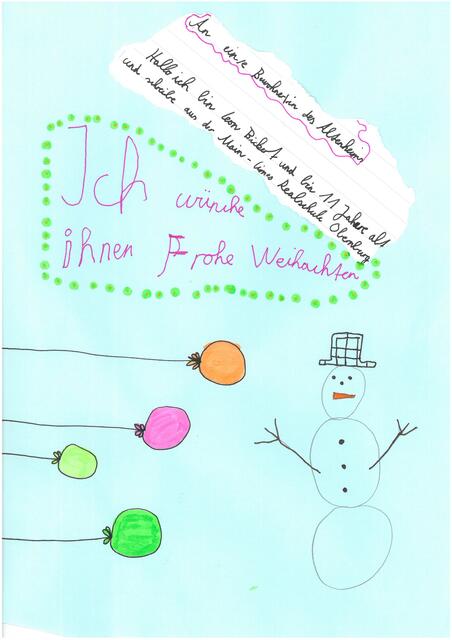 An ein/e Bewohner/in des Altenheims
Hallo ich bin Leon Bickert und bin 11 Jahre alt
und schreibe aus der Main-Limes Realschule Obernburg
Ich wünche
ihnen Frohe Weihachten